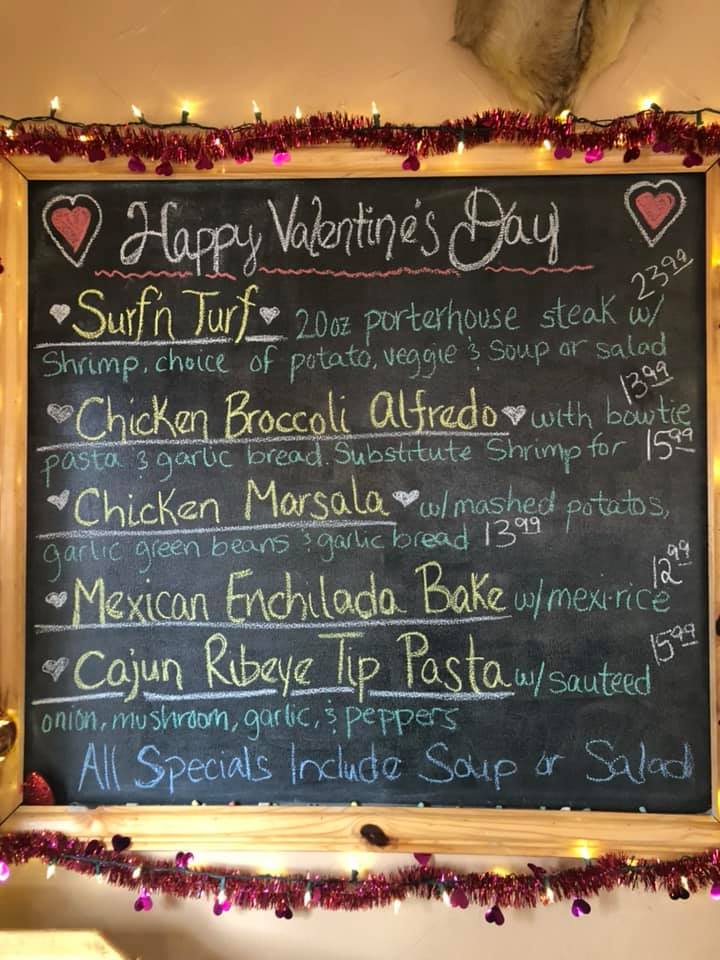 Happy Valentine's Day
23.99
Surf'n Turf 20oz porterhouse steak w/
Shrimp, choice of potato, veggie & Soup or salad
13.99
Chicken Broccoli Alfredo with bowtie
pasta & garlic bread. Substitute Shrimp for 15.99
Chicken Marsala w/mashed potatos,
garlic green beans & garlic bread 13.99
12.99
Mexican Enchilada Bake w/mexi-rice
15.99
Cajun Ribeye Tip Pasta w/sauteed
onion, mushroom, garlic, & peppers
All Specials Include Soup or Salad